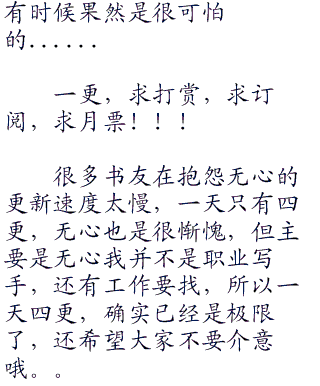 有时候果然是很可怕
的......
一更，求打赏，求订
阅，求月票！！！
很多书友在抱怨无心的
更新速度太慢，一天只有四
更，无心也是很惭愧，但主
要是无心我并不是职业写
手，还有工作要找，所以一
天四更，确实已经是极限
了，还希望大家不要介意
哦。。